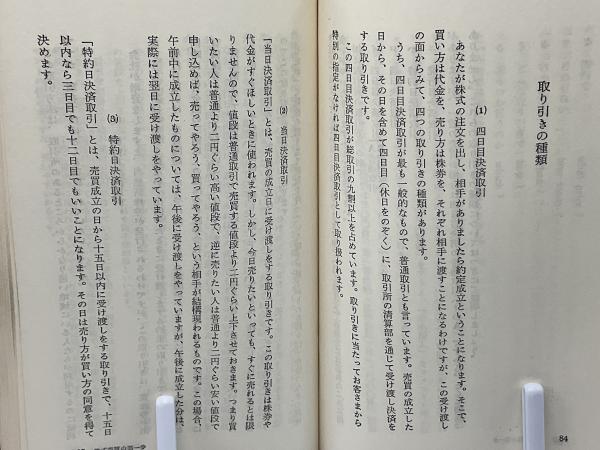 取り引きの種類
(1) 四日目決済取引
あなたが株式の注文を出し、相手がありましたら約定成立ということになります。そこで、
買い方は代金を、売り方は株券を、それぞれ相手に渡すことになるわけですが、この受け渡し
の面からみて、四つの取り引きの種類があります。
うち、四日目決済取引が最も一般的なもので、普通取引とも言っています。売買の成立した
日から、その日を含めて四日目(休日をのぞく)に、取引所の清算部を通じて受け渡し決済を
する取り引きです。
この四日目決済取引が総取引の九割以上を占めています。取り引きに当たってお客さまから
特別の指定がなければ四日目決済取引として取り扱われます。
84
(2) 当日決済取引
「当日決済取引」とは、売買の成立日に受け渡しをする取り引きです。この取り引きは株券や
代金がすぐほしいときに使われます。しかし、今日売りたいといっても、すぐに売れるとは限
りませんので、値段は普通取引で売買する値段より二円ぐらい上下させておきます。つまり買
いたい人は普通より二円ぐらい高い値段で、逆に売りたい人は普通より二円ぐらい安い値段で
申し込めば、売ってやろう、買ってやろう、という相手が結構現われるものです。この場合、
午前中に成立したものについては、午後に受け渡しをやっていますが、午後に成立した分は、
実際には翌日に受け渡しをやっています。
(3) 特約日決済取引
「特約日決済取引」とは、売買成立の日から十五日以内に受け渡しをする取り引きで、十五日
以内なら三日目でも十二日目でもいいことになります。その日は売り方が買い方の同意を得て
決めます。